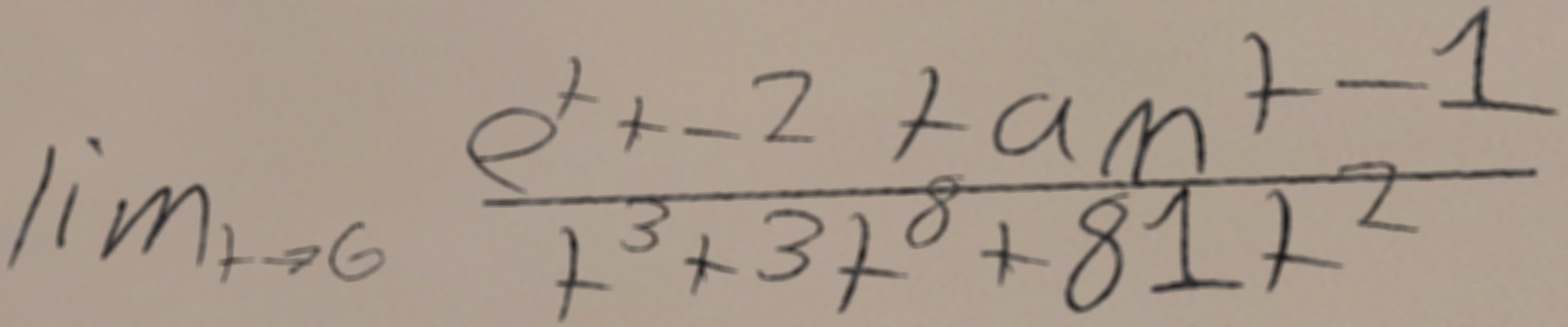 \lim_{t \to 6} \frac{e^t + -2 \tan t - 1}{t^3 + 3t^8 + 81t^2}